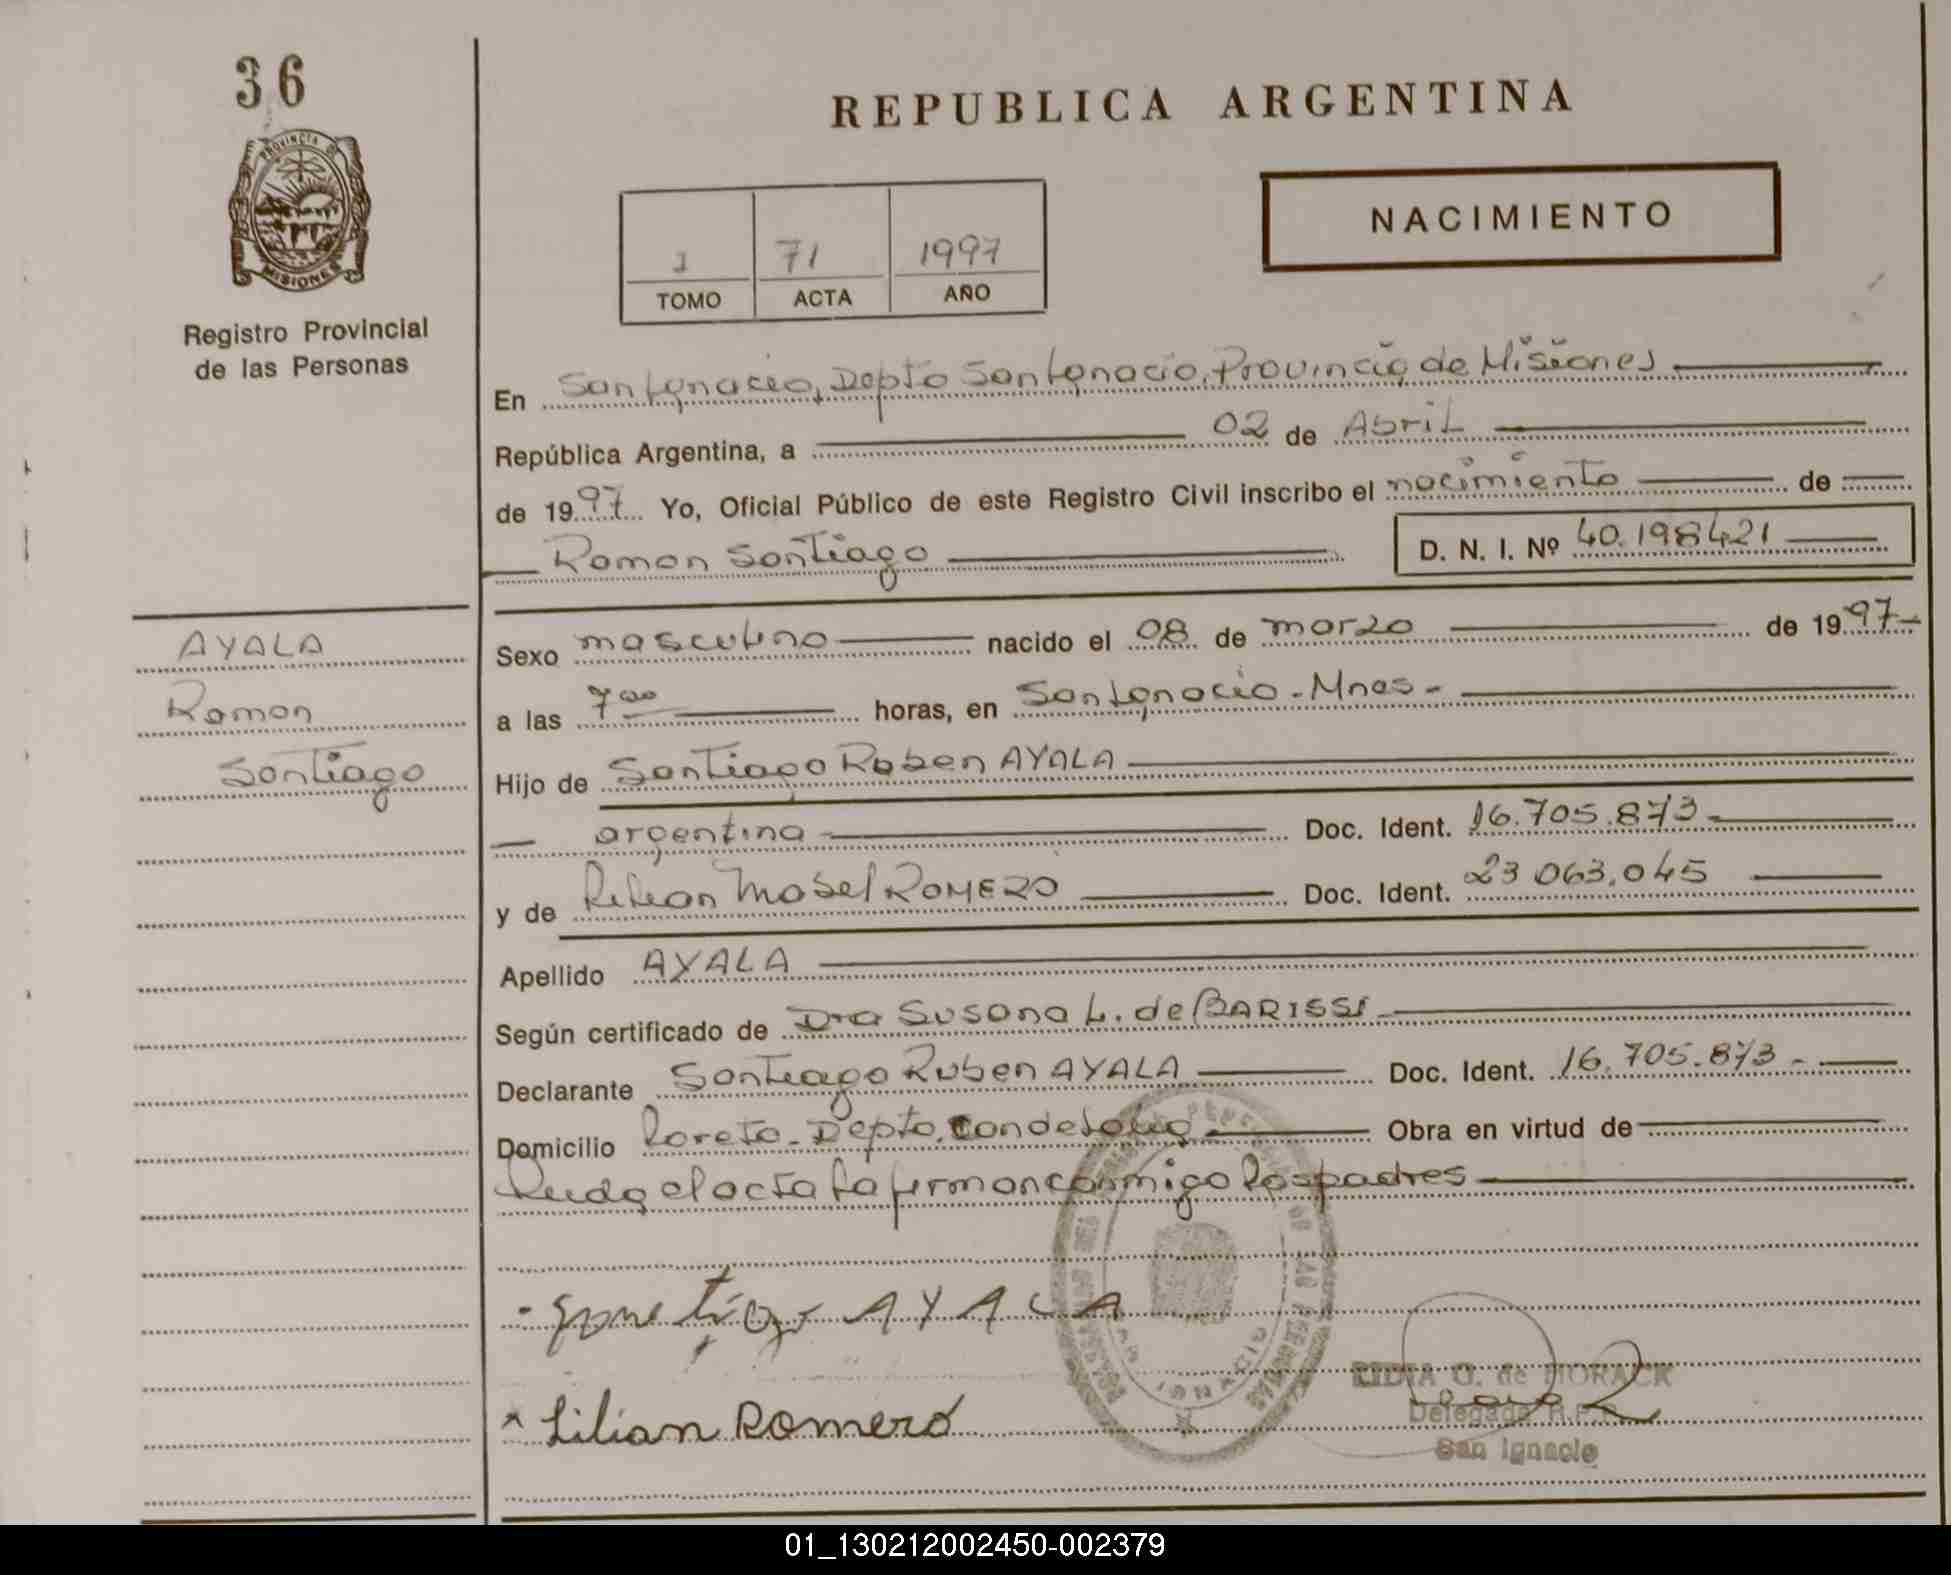 36
PROVINCIA DE
MISIONES
Registro Provincial
de las Personas
REPUBLICA ARGENTINA
1 71 1997
TOMO ACTA AÑO
NACIMIENTO
En San Ignacio, Depto San Ignacio, Provincia de Misiones
República Argentina, a 02 de Abril
de 1997 Yo, Oficial Público de este Registro Civil inscribo el nacimiento de
Ramon Santiago D. N. I. Nº 40.198421
AYALA
Ramon
Santiago
Sexo masculino nacido el 08 de marzo de 1997
a las 7 00 horas, en San Ignacio - Mnes -
Hijo de Santiago Ruben AYALA
argentina Doc. Ident. 16.705.873
y de Lilian Mabel ROMERO Doc. Ident. 23 063.045
Apellido AYALA
Según certificado de Dra Susana L. de BARISSI
Declarante Santiago Ruben AYALA Doc. Ident. 16.705.873 -
Domicilio Loreto - Depto. Candelaria - Obra en virtud de
Leida el acta la firman conmigo los padres
AYALA
Lilian Romero
LIDIA G. de HORACK
Delegada R.P.P.
San Ignacio
01_130212002450-002379